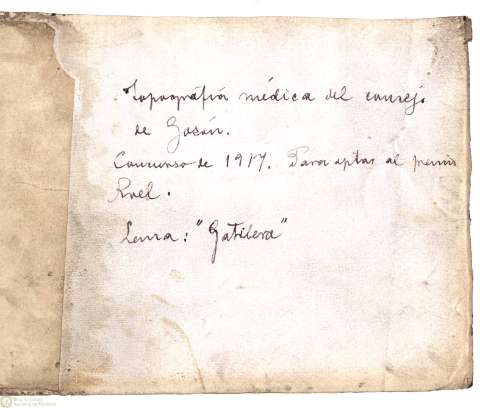 Topografía médica del concejo
de Gozón.
Concurso de 1917. Para optar al premio
Roel.
Lema: "Gatilera"